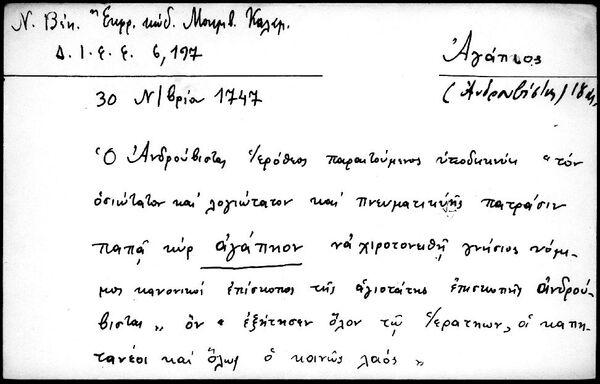 Ν. Βέη. Ἔκφρ. κώδ. Μονεμβ. Καλαμ.
Δ. Ι. Ε. Ε. 6, 197
Ἀγάπιος
(Ἀνδρουβίστης) 18
30 Ν/βρίου 1747
Ὁ Ἀνδρούβιστας Ἱερόθεος παραιτούμενος ὑποδεικνύει "τόν
ὁσιώτατον καί λογιώτατον καί πνευματικόν τῆς πατράσιν
παπᾶ κύρ ἀγάπιον νά χιροτονηθῇ γνήσιος νόμι-
μος κανονικός ἐπίσκοπος τῆς ἁγιοτάτης ἐπισκοπῆς ἀνδρού-
βιστας" ὅν "ἐξήτησεν ὅλον τῶ ἱερατηων, οἱ καπη-
τανέοι καί ὅλως ὁ κοινῶς λαός"